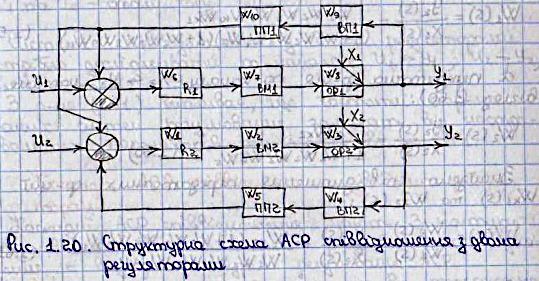 W10
ПП1
W9
ВП1
U1
W6
R1
W7
ВМ1
X1
W8
ОР1
Y1
U2
W1
R2
W2
ВМ2
X2
W3
ОР2
Y2
W5
ПП2
W4
ВП2
Рис. 1.20. Структурна схема АСР співвідношення з двома
регуляторами